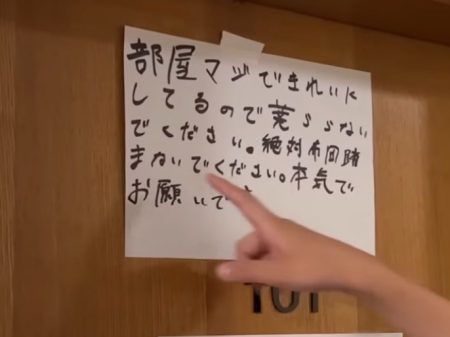 部屋マジできれいに
してるので荒らさない
でください。絶対布団踏
まないでください。本気で
お願いで
101